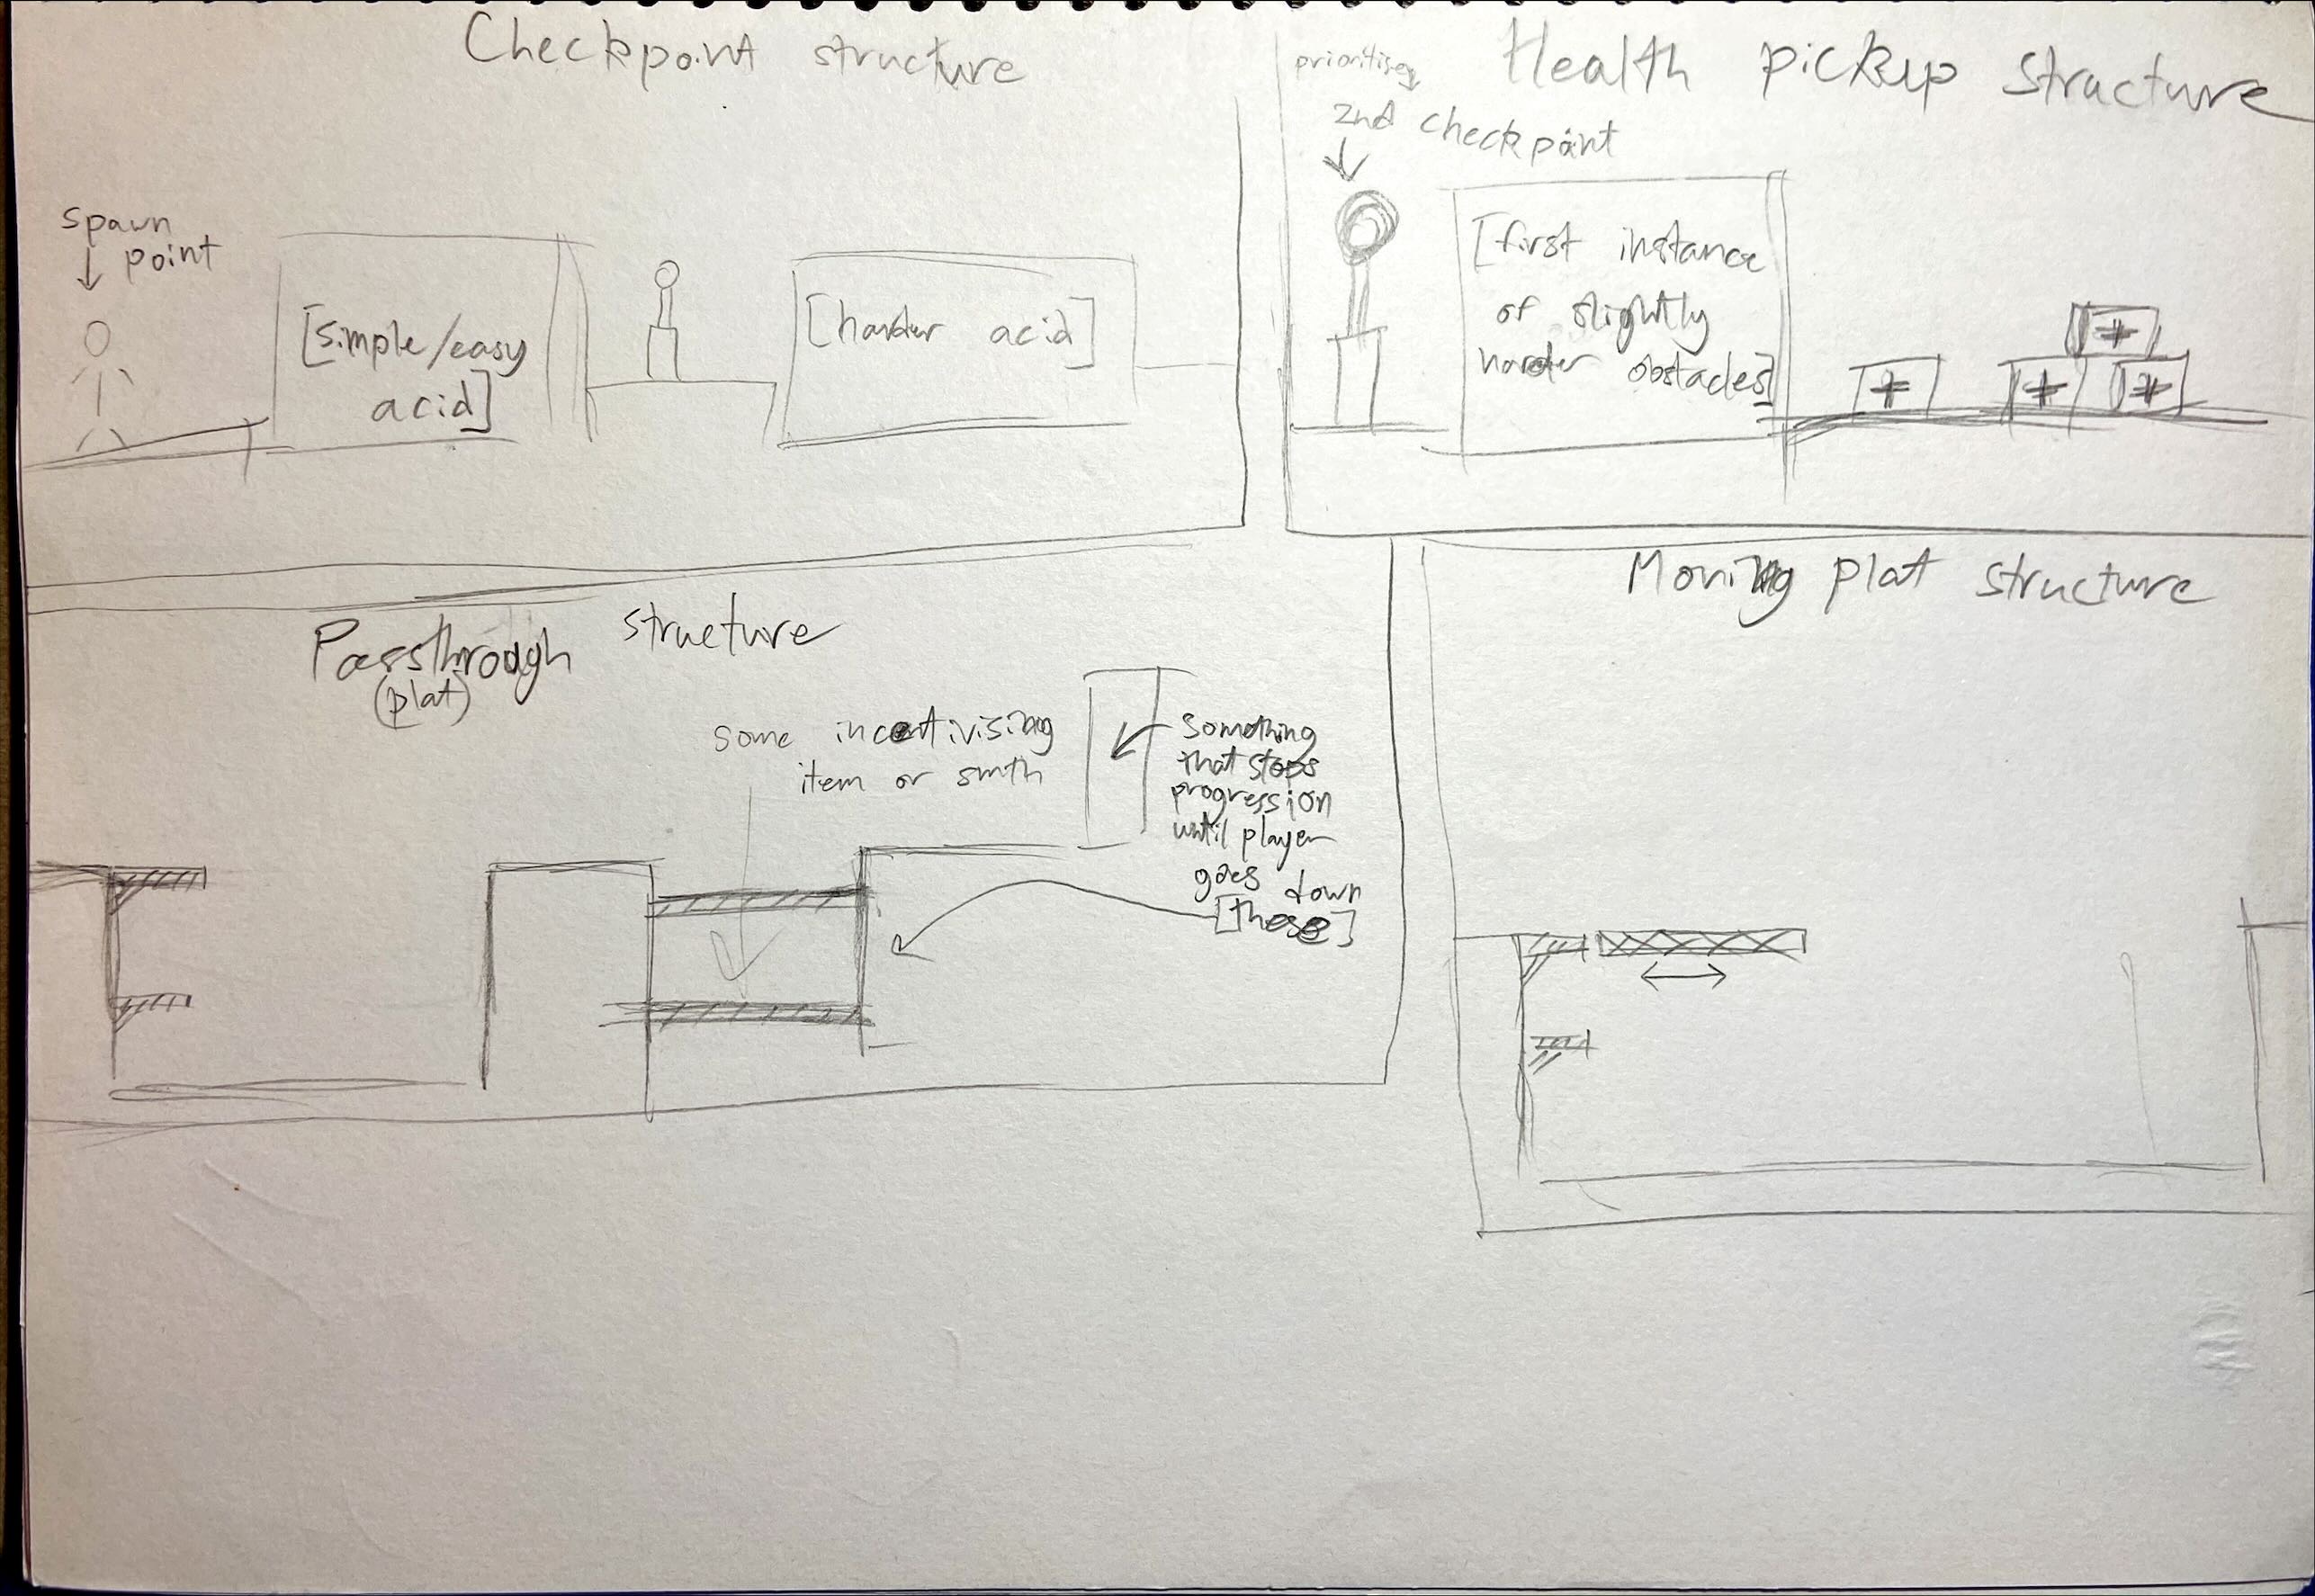 Checkpoint structure
spawn
point
[simple/easy
acid]
[harder acid]
Health pickup structure
prioritises
2nd checkpoint
[first instance
of slightly
harder obstacles]
Passthrough structure
(plat)
some incentivising
item or smth
something
that stops
progression
until player
goes down
[these]
Moving plat structure